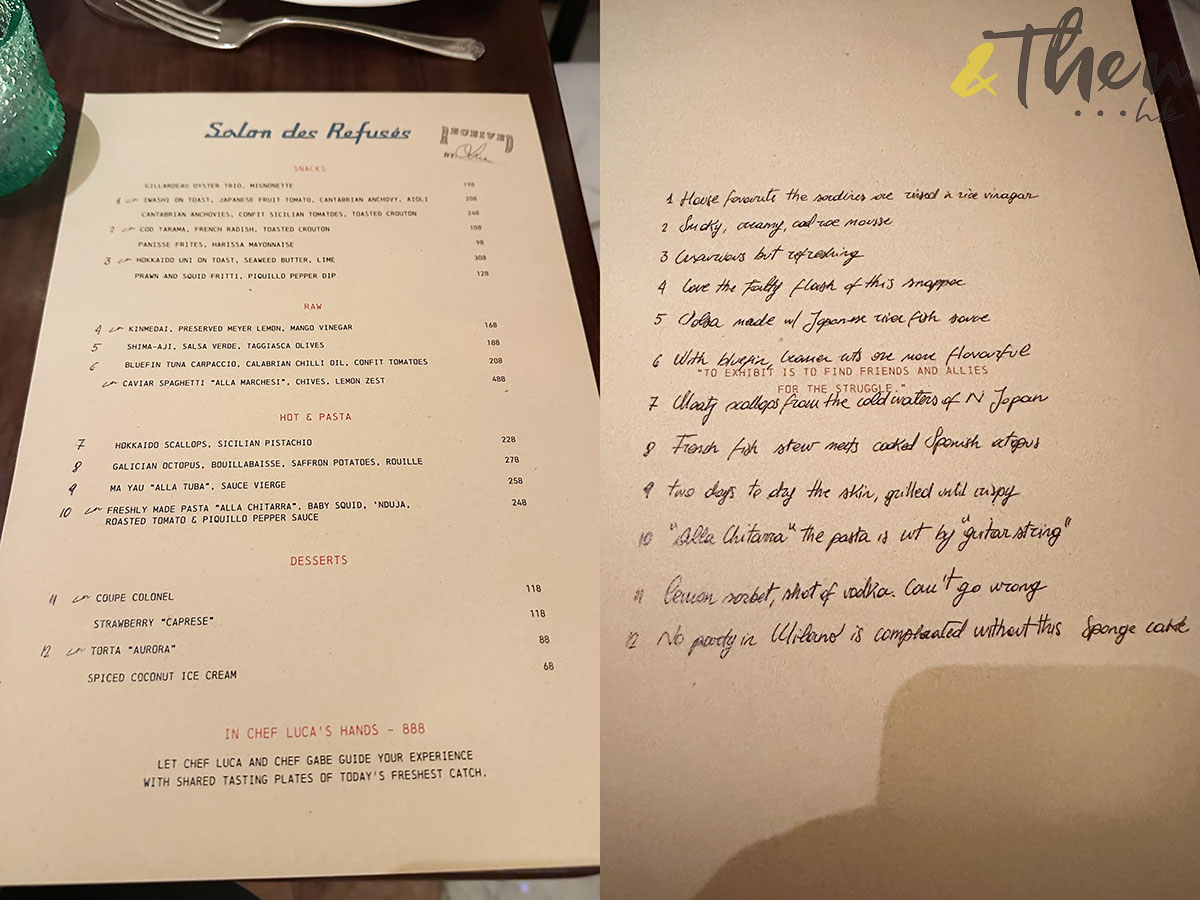 Salon des Refusés
RECEIVED
BY:
SNACKS
GILLARDEAU OYSTER TRIO, MIGNONETTE 198
1 IWASHI ON TOAST, JAPANESE FRUIT TOMATO, CANTABRIAN ANCHOVY, AIOLI 208
CANTABRIAN ANCHOVIES, CONFIT SICILIAN TOMATOES, TOASTED CROUTON 248
2 COD TARAMA, FRENCH RADISH, TOASTED CROUTON 108
PANISSE FRITES, HARISSA MAYONNAISE 98
3 HOKKAIDO UNI ON TOAST, SEAWEED BUTTER, LIME 308
PRAWN AND SQUID FRITTI, PIQUILLO PEPPER DIP 128
RAW
4 KINMEDAI, PRESERVED MEYER LEMON, MANGO VINEGAR 168
5 SHIMA-AJI, SALSA VERDE, TAGGIASCA OLIVES 188
6 BLUEFIN TUNA CARPACCIO, CALABRIAN CHILLI OIL, CONFIT TOMATOES 208
CAVIAR SPAGHETTI "ALLA MARCHESI", CHIVES, LEMON ZEST 488
HOT & PASTA
7 HOKKAIDO SCALLOPS, SICILIAN PISTACHIO 228
8 GALICIAN OCTOPUS, BOUILLABAISSE, SAFFRON POTATOES, ROUILLE 278
9 MA YAU "ALLA TUBA", SAUCE VIERGE 258
10 FRESHLY MADE PASTA "ALLA CHITARRA", BABY SQUID, 'NDUJA, 248
ROASTED TOMATO & PIQUILLO PEPPER SAUCE
DESSERTS
11 COUPE COLONEL 118
STRAWBERRY "CAPRESE" 118
12 TORTA "AURORA" 88
SPICED COCONUT ICE CREAM 68
IN CHEF LUCA'S HANDS - 888
LET CHEF LUCA AND CHEF GABE GUIDE YOUR EXPERIENCE
WITH SHARED TASTING PLATES OF TODAY'S FRESHEST CATCH.
&Then
...hk
1 House favourite the sardines are in rice vinagar
2 Smoky, creamy, cod roe mousse
3 but refreshing
4 Love the fatty flash of this snapper
5 made w/ Japanese river fish sauce
6 With bluefin, leaner cuts are more flavourful
"TO EXHIBIT IS TO FIND FRIENDS AND ALLIES
FOR THE STRUGGLE."
7 Meaty scallops from the cold waters of N Japan
8 French fish stew meets cooked Spanish octopus
9 two days to dry the skin, grilled until crispy
10 "Alla Chitarra" the pasta is cut by "guitar string"
11 Lemon sorbet, shot of vodka. Can't go wrong
12 No party in Milano is compleated without this Sponge cake